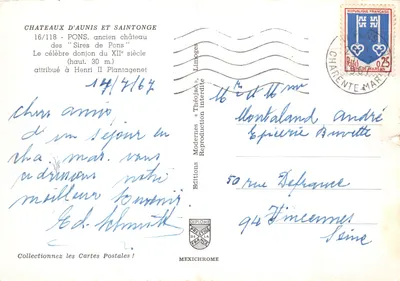 CHATEAUX D'AUNIS ET SAINTONGE
16/118 - PONS, ancien château
des "Sires de Pons"
Le célèbre donjon du XIIe siècle
(haut. 30 m.)
attribué à Henri II Plantagenet
14/7/67
chers amis
d'un séjour en
cha. mar. vous
adressons notre
meilleur souvenir
Ed. Schmitt
Collectionnez les Cartes Postales !
Editions Modernes "Théojac" Limoges
Reproduction interdite
MEXICHROME
REPUBLIQUE FRANÇAISE
0,25
CHARENTE MARME
Mr et Mme
Montaland André
Epicerie Buvette
50 rue Defrance
94 Vincennes
Seine